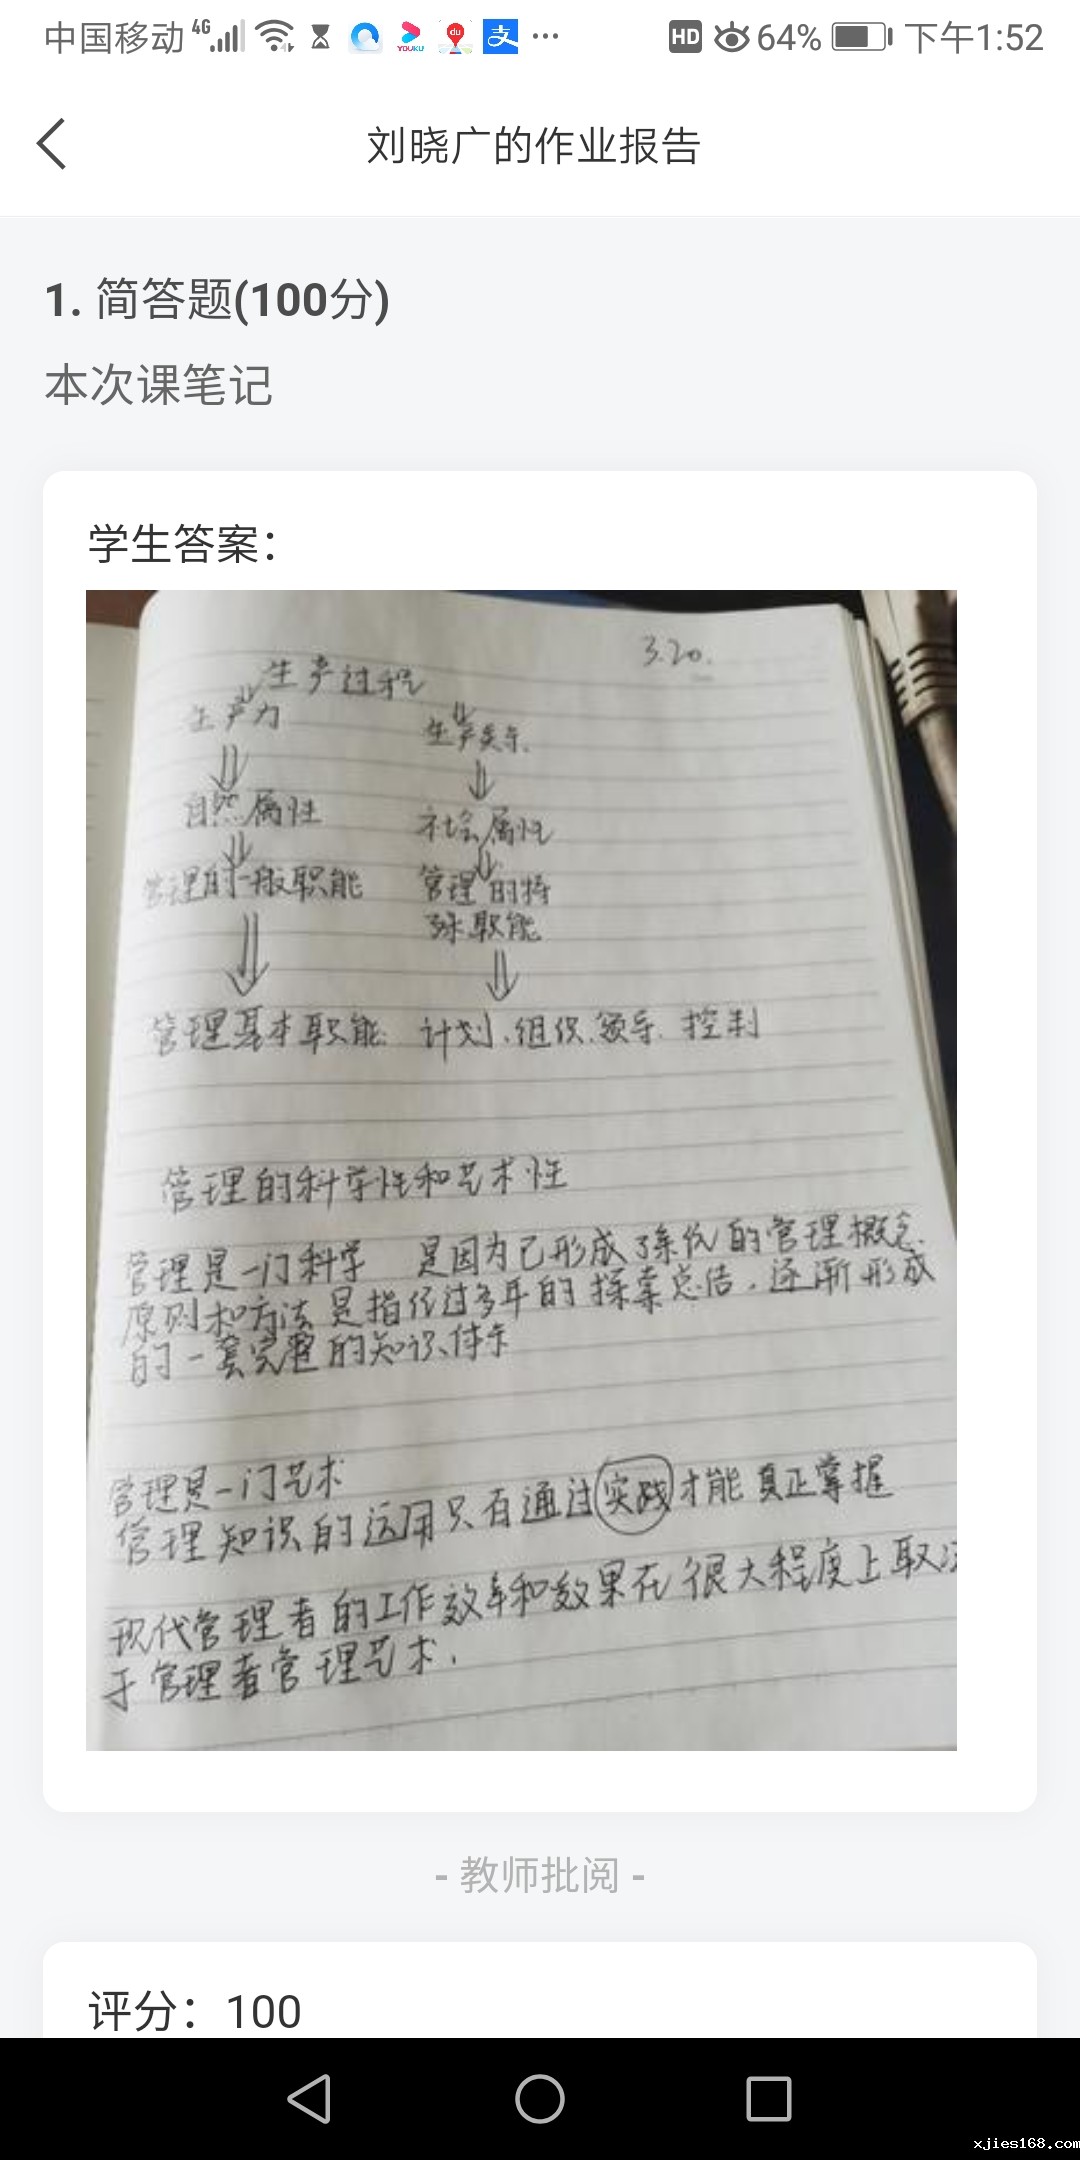 中国移动 4G HD 64% 下午1:52
YOUKU du 支
刘晓广的作业报告
1. 简答题(100分)
本次课笔记
学生答案：
3.20.
生产过程
生产力 生产关系.
自然属性 社会属性
管理的一般职能 管理的特
殊职能
管理基本职能: 计划.组织.领导.控制
管理的科学性和艺术性
管理是一门科学 是因为已形成了系统的管理概念.
原则和方法 是指经过多年的探索总结.逐渐形成
的一套完整的知识体系
管理是一门艺术
管理知识的运用只有通过实践才能真正掌握
现代管理者的工作效率和效果在很大程度上取决
于管理者管理艺术.
- 教师批阅 -
评分：100
xjies168.com